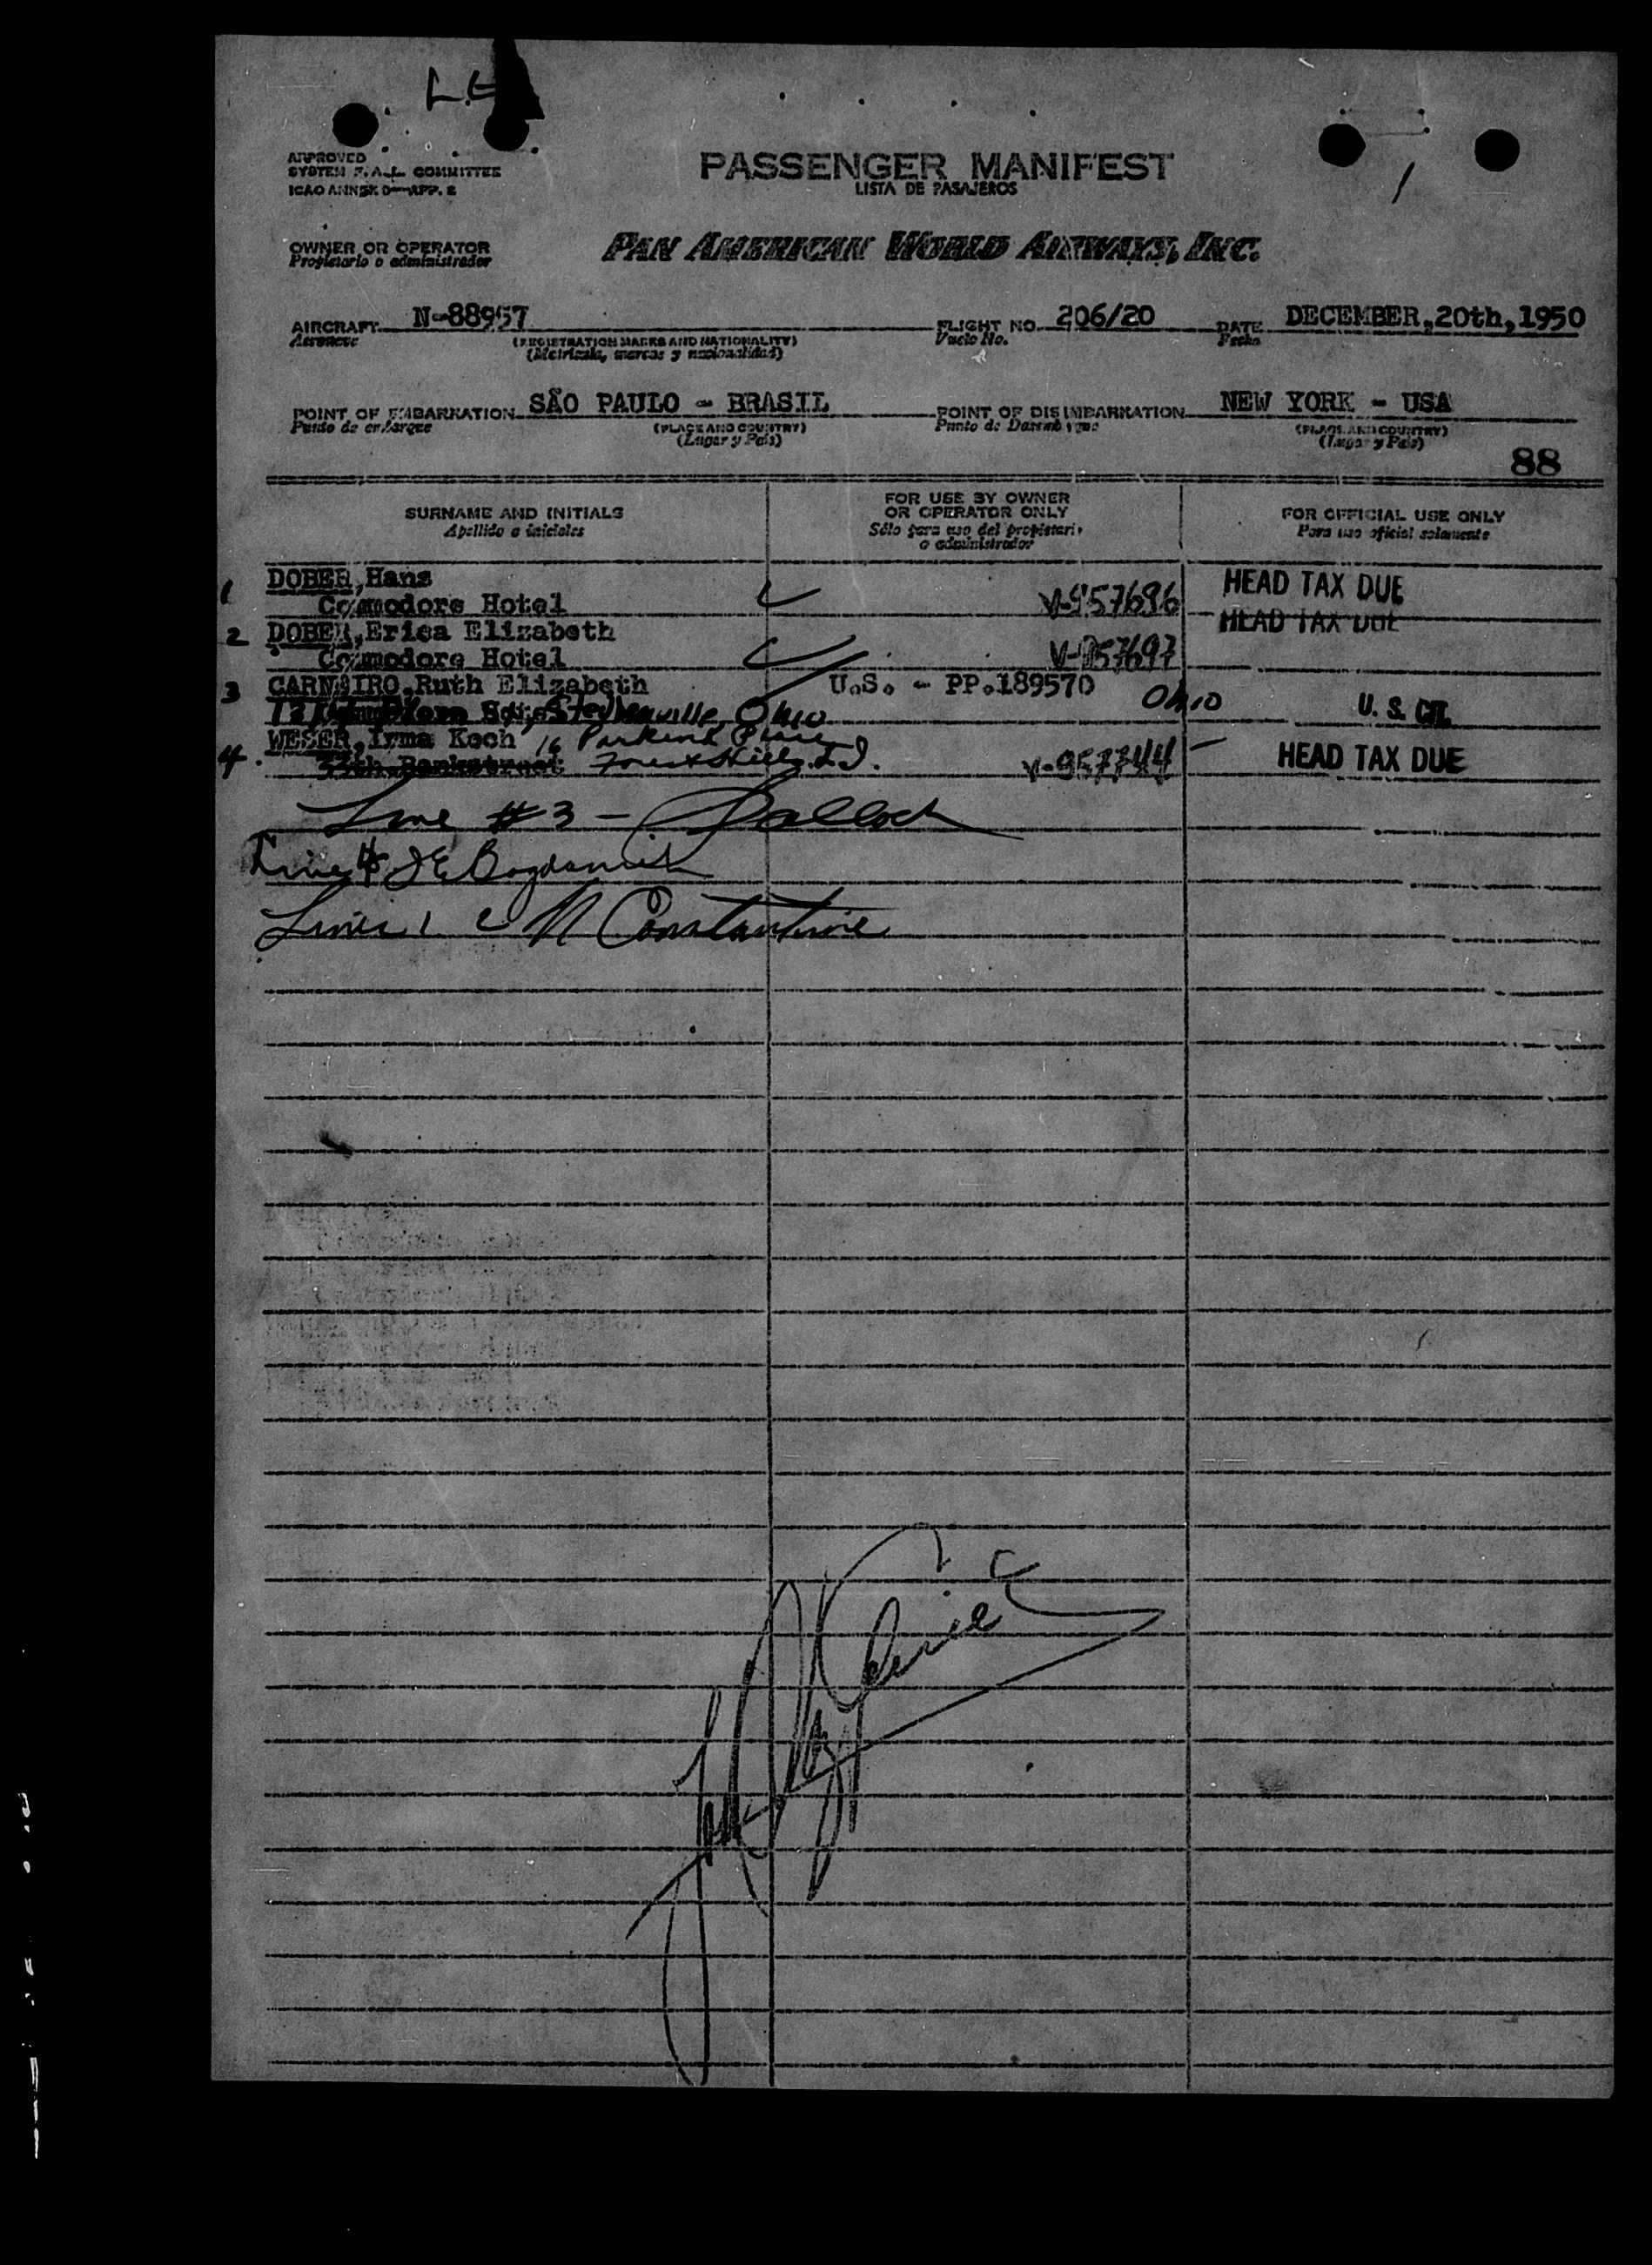 L.E
APPROVED
SYSTEM F.A.L. COMMITTEE
ICAO ANNEX 9—APP. 2
PASSENGER MANIFEST
LISTA DE PASAJEROS
OWNER OR OPERATOR
Propietario o administrador
PAN AMERICAN WORLD AIRWAYS, INC.
AIRCRAFT N-88957 FLIGHT NO. 206/20 DATE DECEMBER,20th,1950
Aeronave (REGISTRATION MARKS AND NATIONALITY) Vuelo No. Fecha
(Matrícula, marcas y nacionalidad)
POINT OF EMBARKATION SÃO PAULO - BRASIL POINT OF DISEMBARKATION NEW YORK - USA
Punto de embarque (PLACE AND COUNTRY) Punto de Desembarque (PLACE AND COUNTRY)
(Lugar y País) (Lugar y País)
88
SURNAME AND INITIALS
Apellido e iniciales
FOR USE BY OWNER
OR OPERATOR ONLY
Sólo para uso del propietario
o administrador
FOR OFFICIAL USE ONLY
Para uso oficial solamente
1 DOBER,Hans HEAD TAX DUE
Commodore Hotel V-957696
HEAD TAX DUE
2 DOBER,Erica Elizabeth
Commodore Hotel V-957697
3 CARNAIRO,Ruth Elizabeth U.S. - PP.189570
Steubenville, Ohio Ohio U. S. CIT.
4. WESER,Irma Koch 16 Parkend Place HEAD TAX DUE
Bankstreet Forest Hills L.I. V-957744
Line #3 - Pallock
Line 4 J E Bogdanwich
Lines 1 2 N Constantine